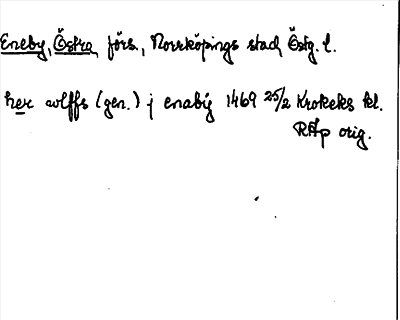 Eneby, Östra förs., Norrköpings stad, Östg. l.
her wlffs (gen.) j enabÿ 1469 25/2 Krokeks kl.
RAp orig.